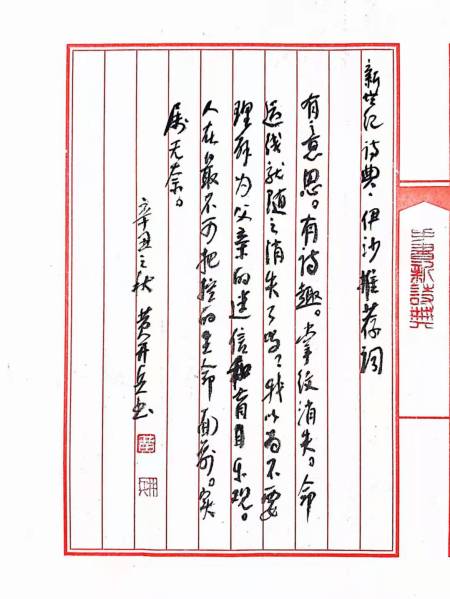 新世纪诗典·伊沙推荐词
有意思。有诗趣。掌纹消失。命
运线就随之消失了吗？我以为不要
理解为父亲的迷信和盲目乐观。
人在最不可把控的生命面前。实
属无奈。
辛丑之秋 黄开兵书